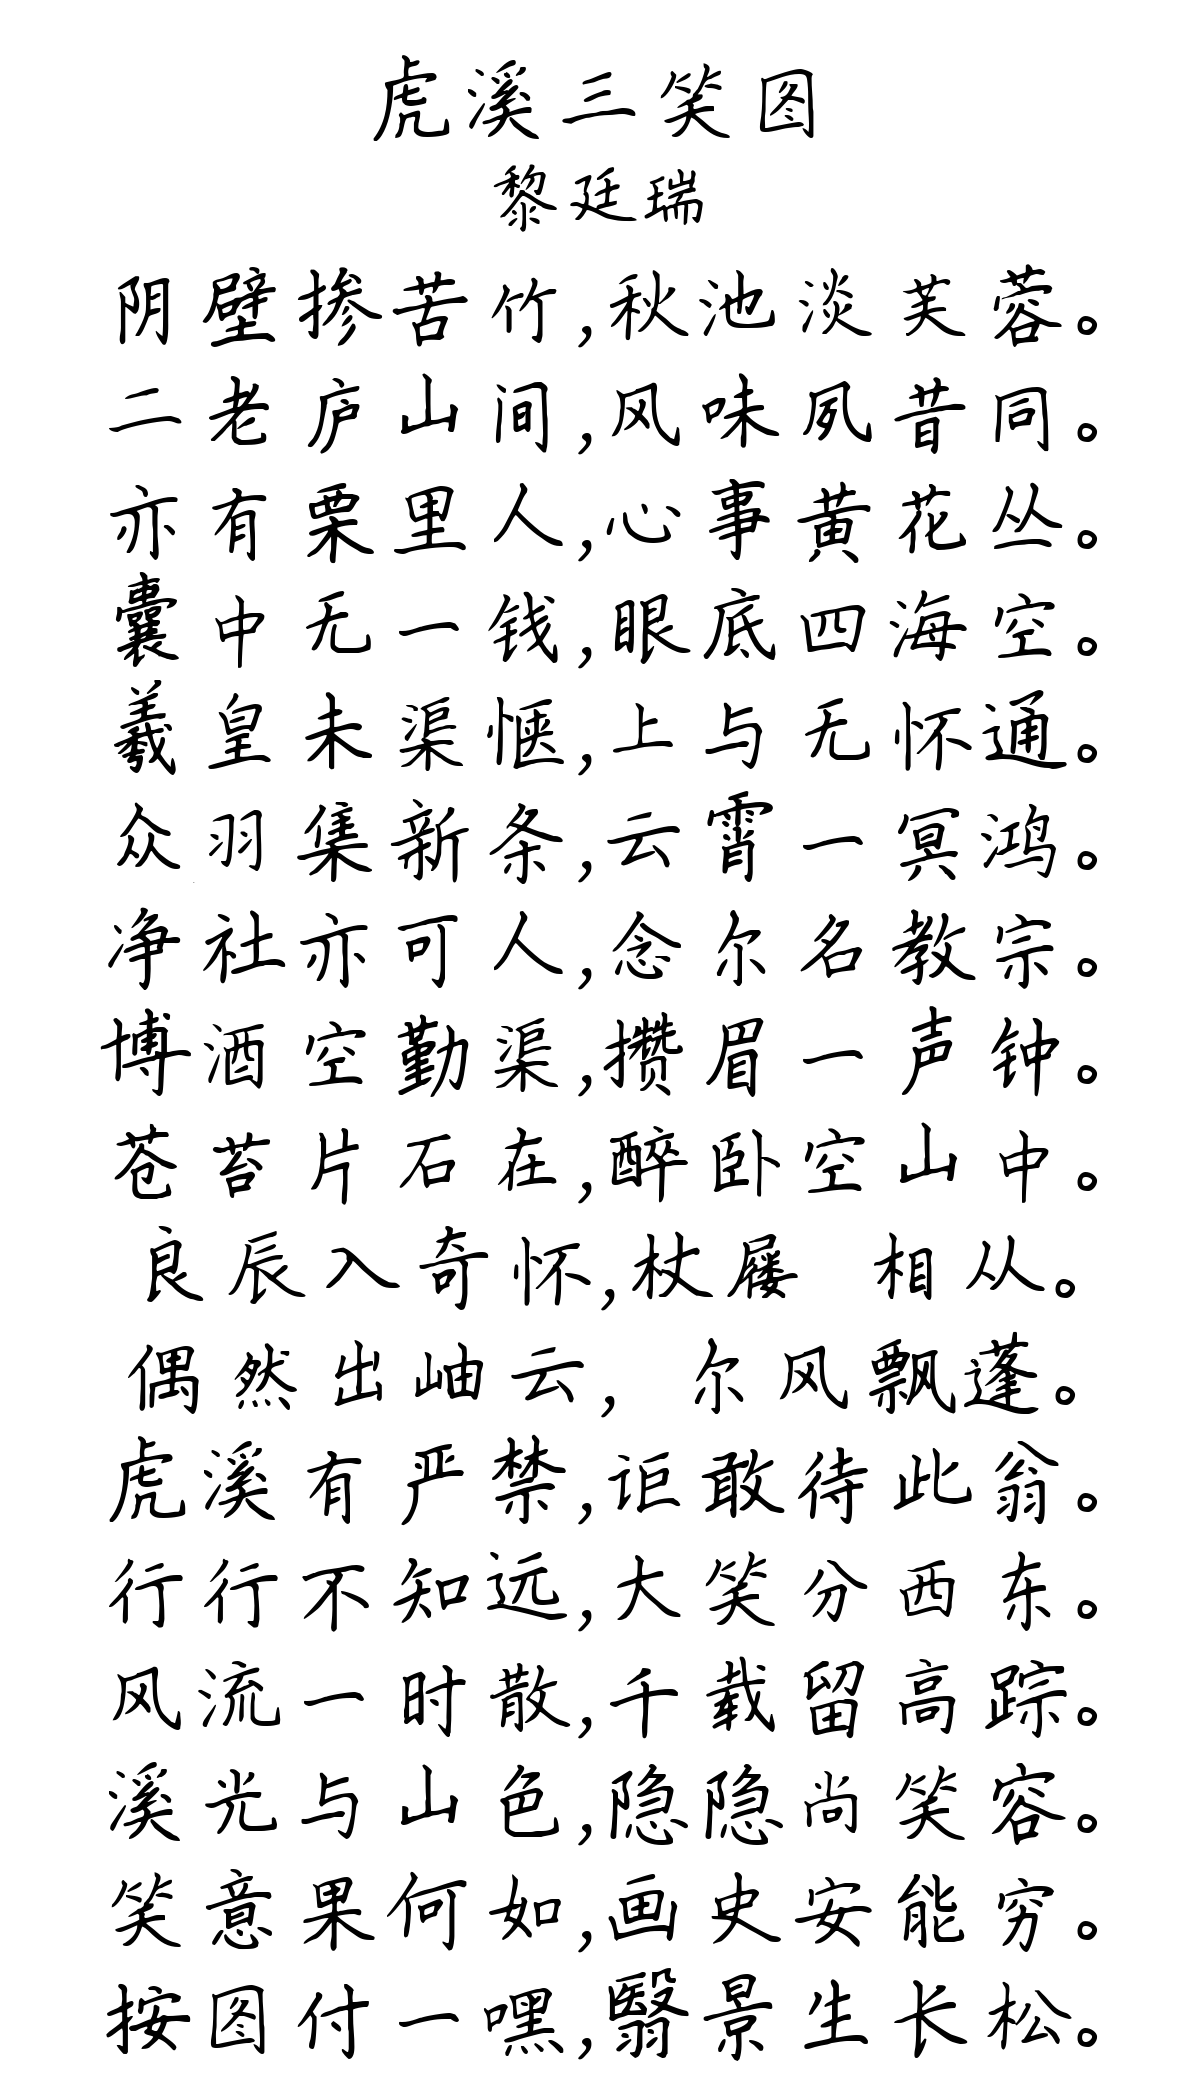 虎溪三笑图
黎廷瑞
阴壁掺苦竹,秋池淡芙蓉。
二老庐山间,风味夙昔同。
亦有栗里人,心事黄花丛。
囊中无一钱,眼底四海空。
羲皇未渠惬,上与无怀通。
众羽集新条,云霄一冥鸿。
净社亦可人,念尔名教宗。
博酒空勤渠,攒眉一声钟。
苍苔片石在,醉卧空山中。
良辰入奇怀,杖屦 相从。
偶然出岫云, 尔风飘蓬。
虎溪有严禁,讵敢待此翁。
行行不知远,大笑分西东。
风流一时散,千载留高踪。
溪光与山色,隐隐尚笑容。
笑意果何如,画史安能穷。
按图付一嘿,翳景生长松。